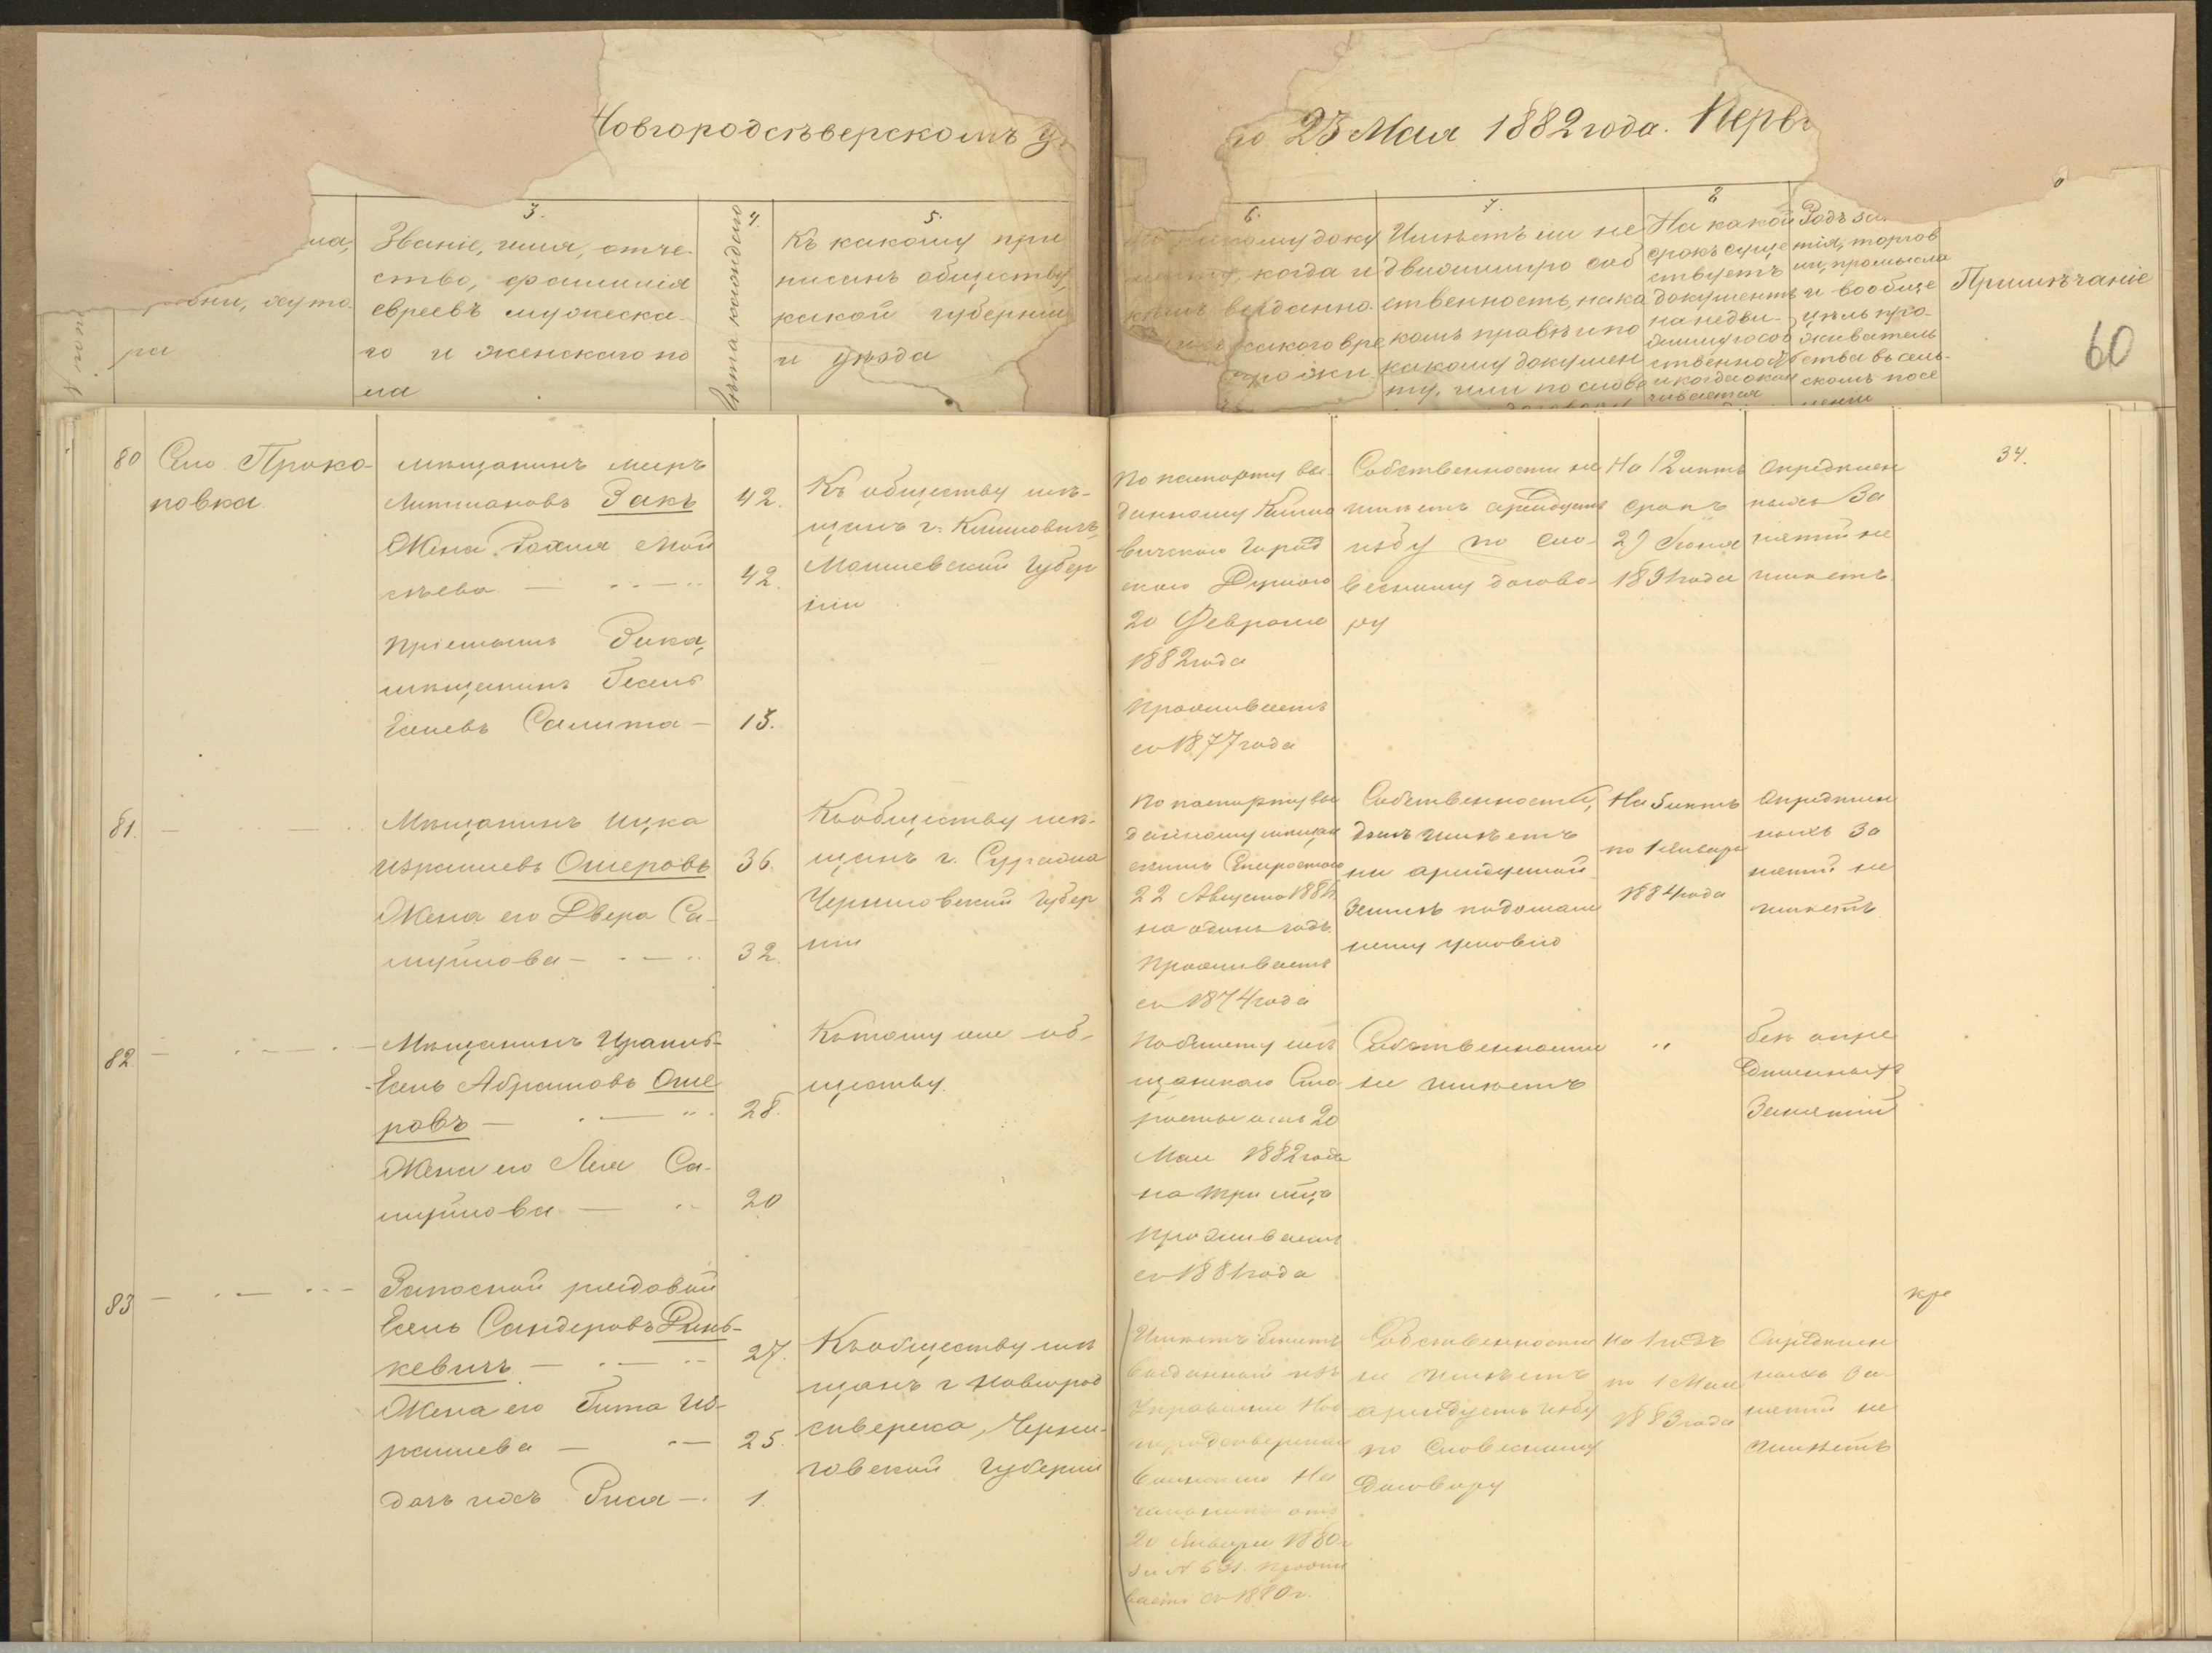 Новгородсѣверскомъ у
го 23 Мая 1882 года. Перв
3.
ла, Званіе, имя, отче-
ство, фамилія
вни, хуто- евреевъ мужеска-
ра го и женскаго по
ла
4.
Лѣта каждаго
5.
Къ какому при
писанъ обществу,
какой губерніи
и уѣзда
6.
какому доку
менту, когда и
кѣмъ выданно-
какого вре
прожи
7.
Имѣетъ ли не
движимую соб
ственность, на ка
комъ правѣ и по
какому докумен
ту, или по слове
договору
8
На какой
срокъ суще
ствуетъ
документъ
на недви-
жимую соб
ственность
и когда окан
чивается
Родъ за
тія, торгов
ли, промысла
и вообще
цѣль про-
живатель
ства въ сель-
скомъ посе
леніи
Примѣчаніе
60
80 Село Проко-
повка
мѣщанинъ Меиръ
Литмановъ Закъ 42.
Жена Рахля Мой
сѣева — 42.
Пріемышъ Зака,
мѣщанинъ Гесель
Еселевъ Салита — 15.
Къ обществу мѣ-
щанъ г. Климовичъ,
Могилевской Губер
ніи
По паспорту вы-
данному Климо
вичскою Город
скою Думою
20 Февраля
1882 года
Проживаетъ
съ 1877 года
Собственности не
имѣетъ арендуетъ
избу по сло-
весному догово-
ру
На 12 лѣтъ
срокъ
29 Іюня
1891 года
Опредѣлен
ныхъ За
нятій не
имѣетъ
34.
81. Мѣщанинъ Ицка
Израилевъ Ошеровъ 36.
Жена его Двера Са-
муйлова — 32.
Къ обществу мѣ-
щанъ г. Суража
Черниговской Губер
ніи
По паспорту вы
данному мѣщан
скимъ Старостою
22 Августа 1881
на одинъ годъ.
Проживаетъ
съ 1874 года
Собственности,
домъ имѣетъ
на арендуемой
Землѣ по домаш
нему условію
На 5 лѣтъ
по 1 Января
1884 года
Опредѣлен
ныхъ За
нятій не
имѣетъ
82 Мѣщанинъ Израиль-
Есель Абрамовъ Оше
ровъ — 28.
Жена его Лея Са-
муйлова — 20
Къ тому же об-
ществу.
По билету мѣ
щанскаго Ста
росты отъ 20
Мая 1882 года
на три мѣца
Проживаетъ
съ 1881 года
Собственности
не имѣетъ
"
безъ опре
дѣленныхъ
Занятій
83 Запасной рядовой
Есель Сандеровъ Динь-
кевичъ — 27.
Жена его Гита Из-
раилева — 25.
дочь ихъ Риса — 1.
Къ обществу мѣ
щанъ г. Новгород
сѣверска, Черни-
говской Губерніи
Имѣетъ билетъ
выданный изъ
Управленія Нов
городсѣверскаго
Воинскаго На
чальника отъ
20 Января 1880 г.
за № 631. Прожи
ваетъ съ 1880 г.
Собственности
не имѣетъ
арендуетъ избу
по Словесному
Договору
На 1 годъ
по 1 Мая
1883 года
Опредѣлен
ныхъ За-
нятій не
имѣетъ
кре